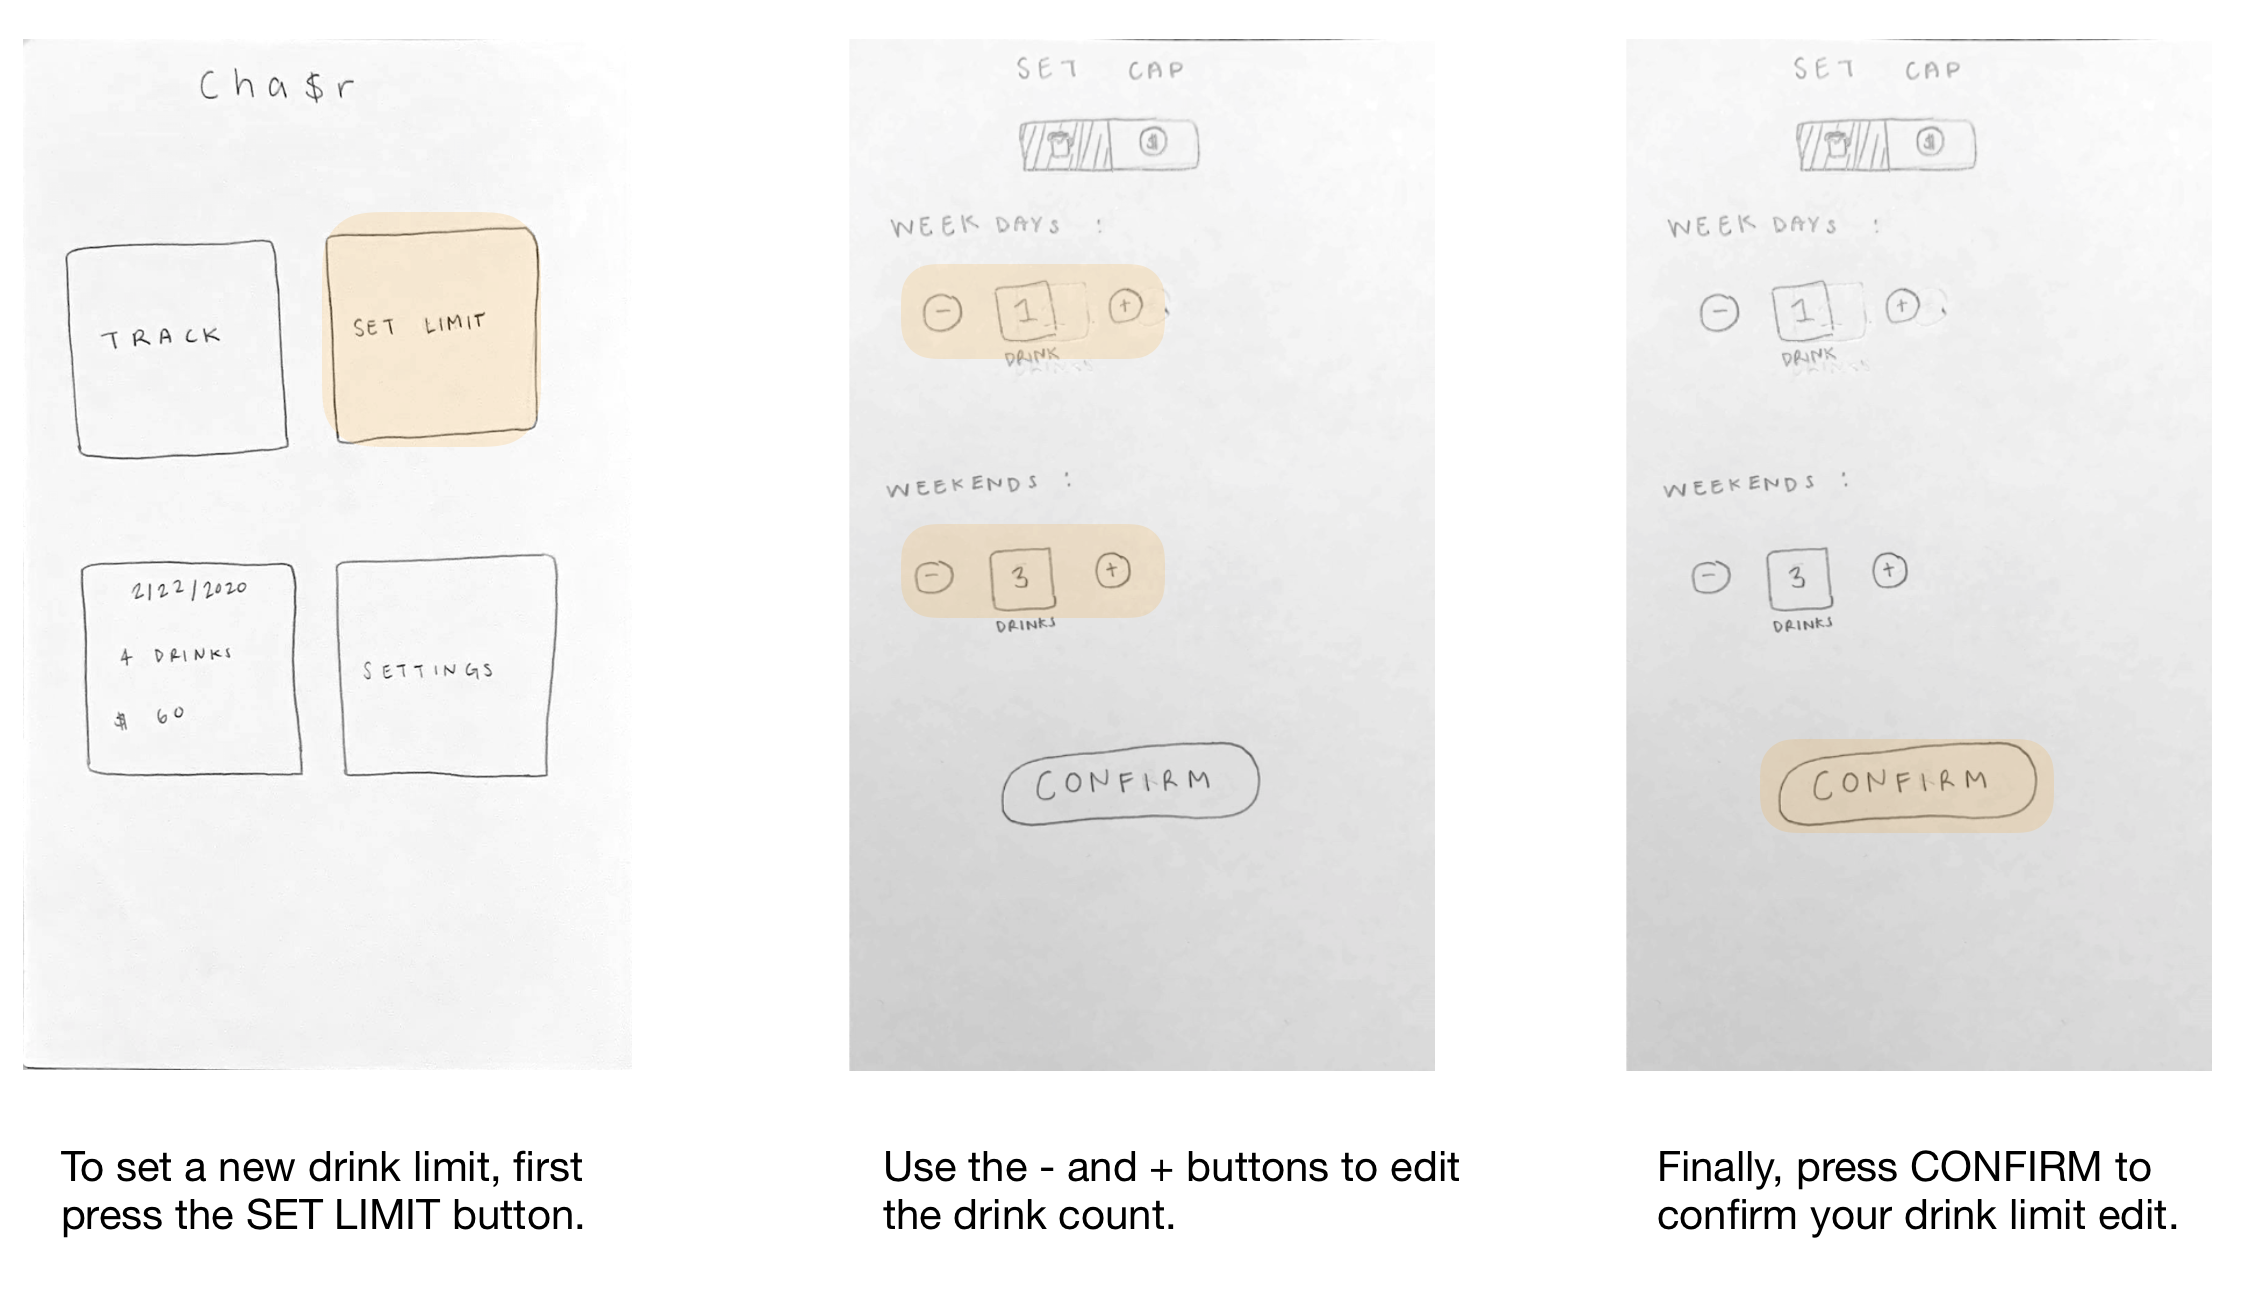 Cha$r
TRACK
SET LIMIT
2/22/2020
4 DRINKS
$ 60
SETTINGS
To set a new drink limit, first
press the SET LIMIT button.
SET CAP
$
WEEK DAYS :
- 1 +
DRINK
WEEKENDS :
- 3 +
DRINKS
CONFIRM
Use the - and + buttons to edit
the drink count.
SET CAP
$
WEEK DAYS :
- 1 +
DRINK
WEEKENDS :
- 3 +
DRINKS
CONFIRM
Finally, press CONFIRM to
confirm your drink limit edit.